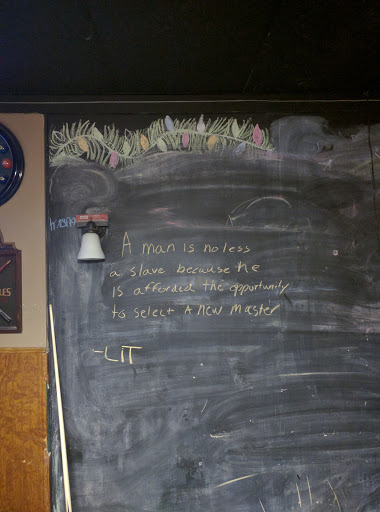 A man is no less
a slave because he
is afforded the opportunity
to select A new master
-LIT